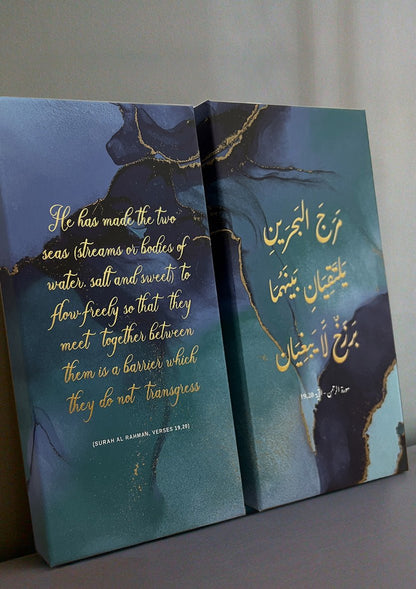 He has made the two
seas (streams or bodies of
water, salt and sweet) to
flow freely so that they
meet together between
them is a barrier which
they do not transgress
(SURAH AL RAHMAN, VERSES 19,20)
مَرَجَ الْبَحْرَيْنِ
يَلْتَقِيَانِ بَيْنَهُمَا
بَرْزَخٌ لَّا يَبْغِيَانِ
سورة الرحمن - 19,20